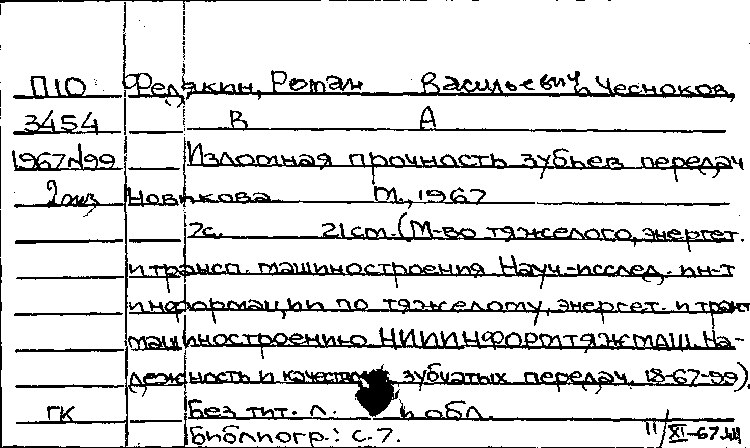 П10 Федякин, Роман Васильевич, Чесноков,
3454 В А
1967 №99 Изломная прочность зубьев передач
2 экз Новикова М., 1967
7с. 21см (М-во тяжелого, энергет.
и трансп. машиностроения Науч-исслед. ин-т
информации по тяжелому, энергет. и трансп
машиностроению НИИИНФОРМТЯЖМАШ. На-
дежность и качество зубчатых передач. 18-67-99).
ГК Без тит. л. и обл.
Библиогр.: с. 7. 11/XI-67